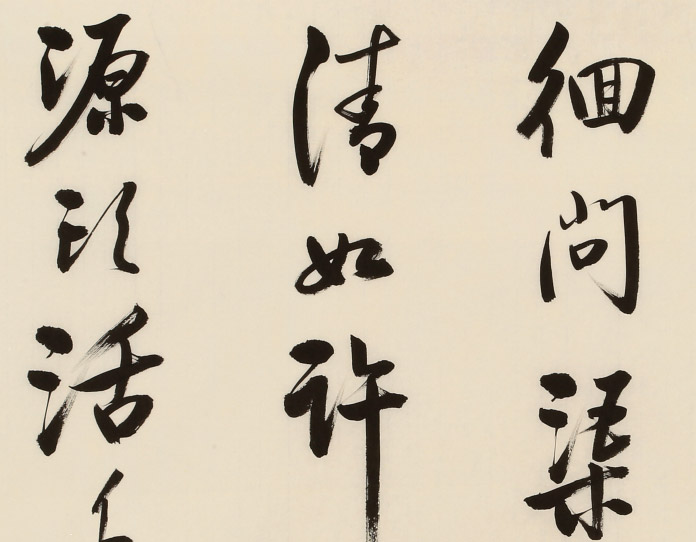 徊問渠
清如許
源頭活